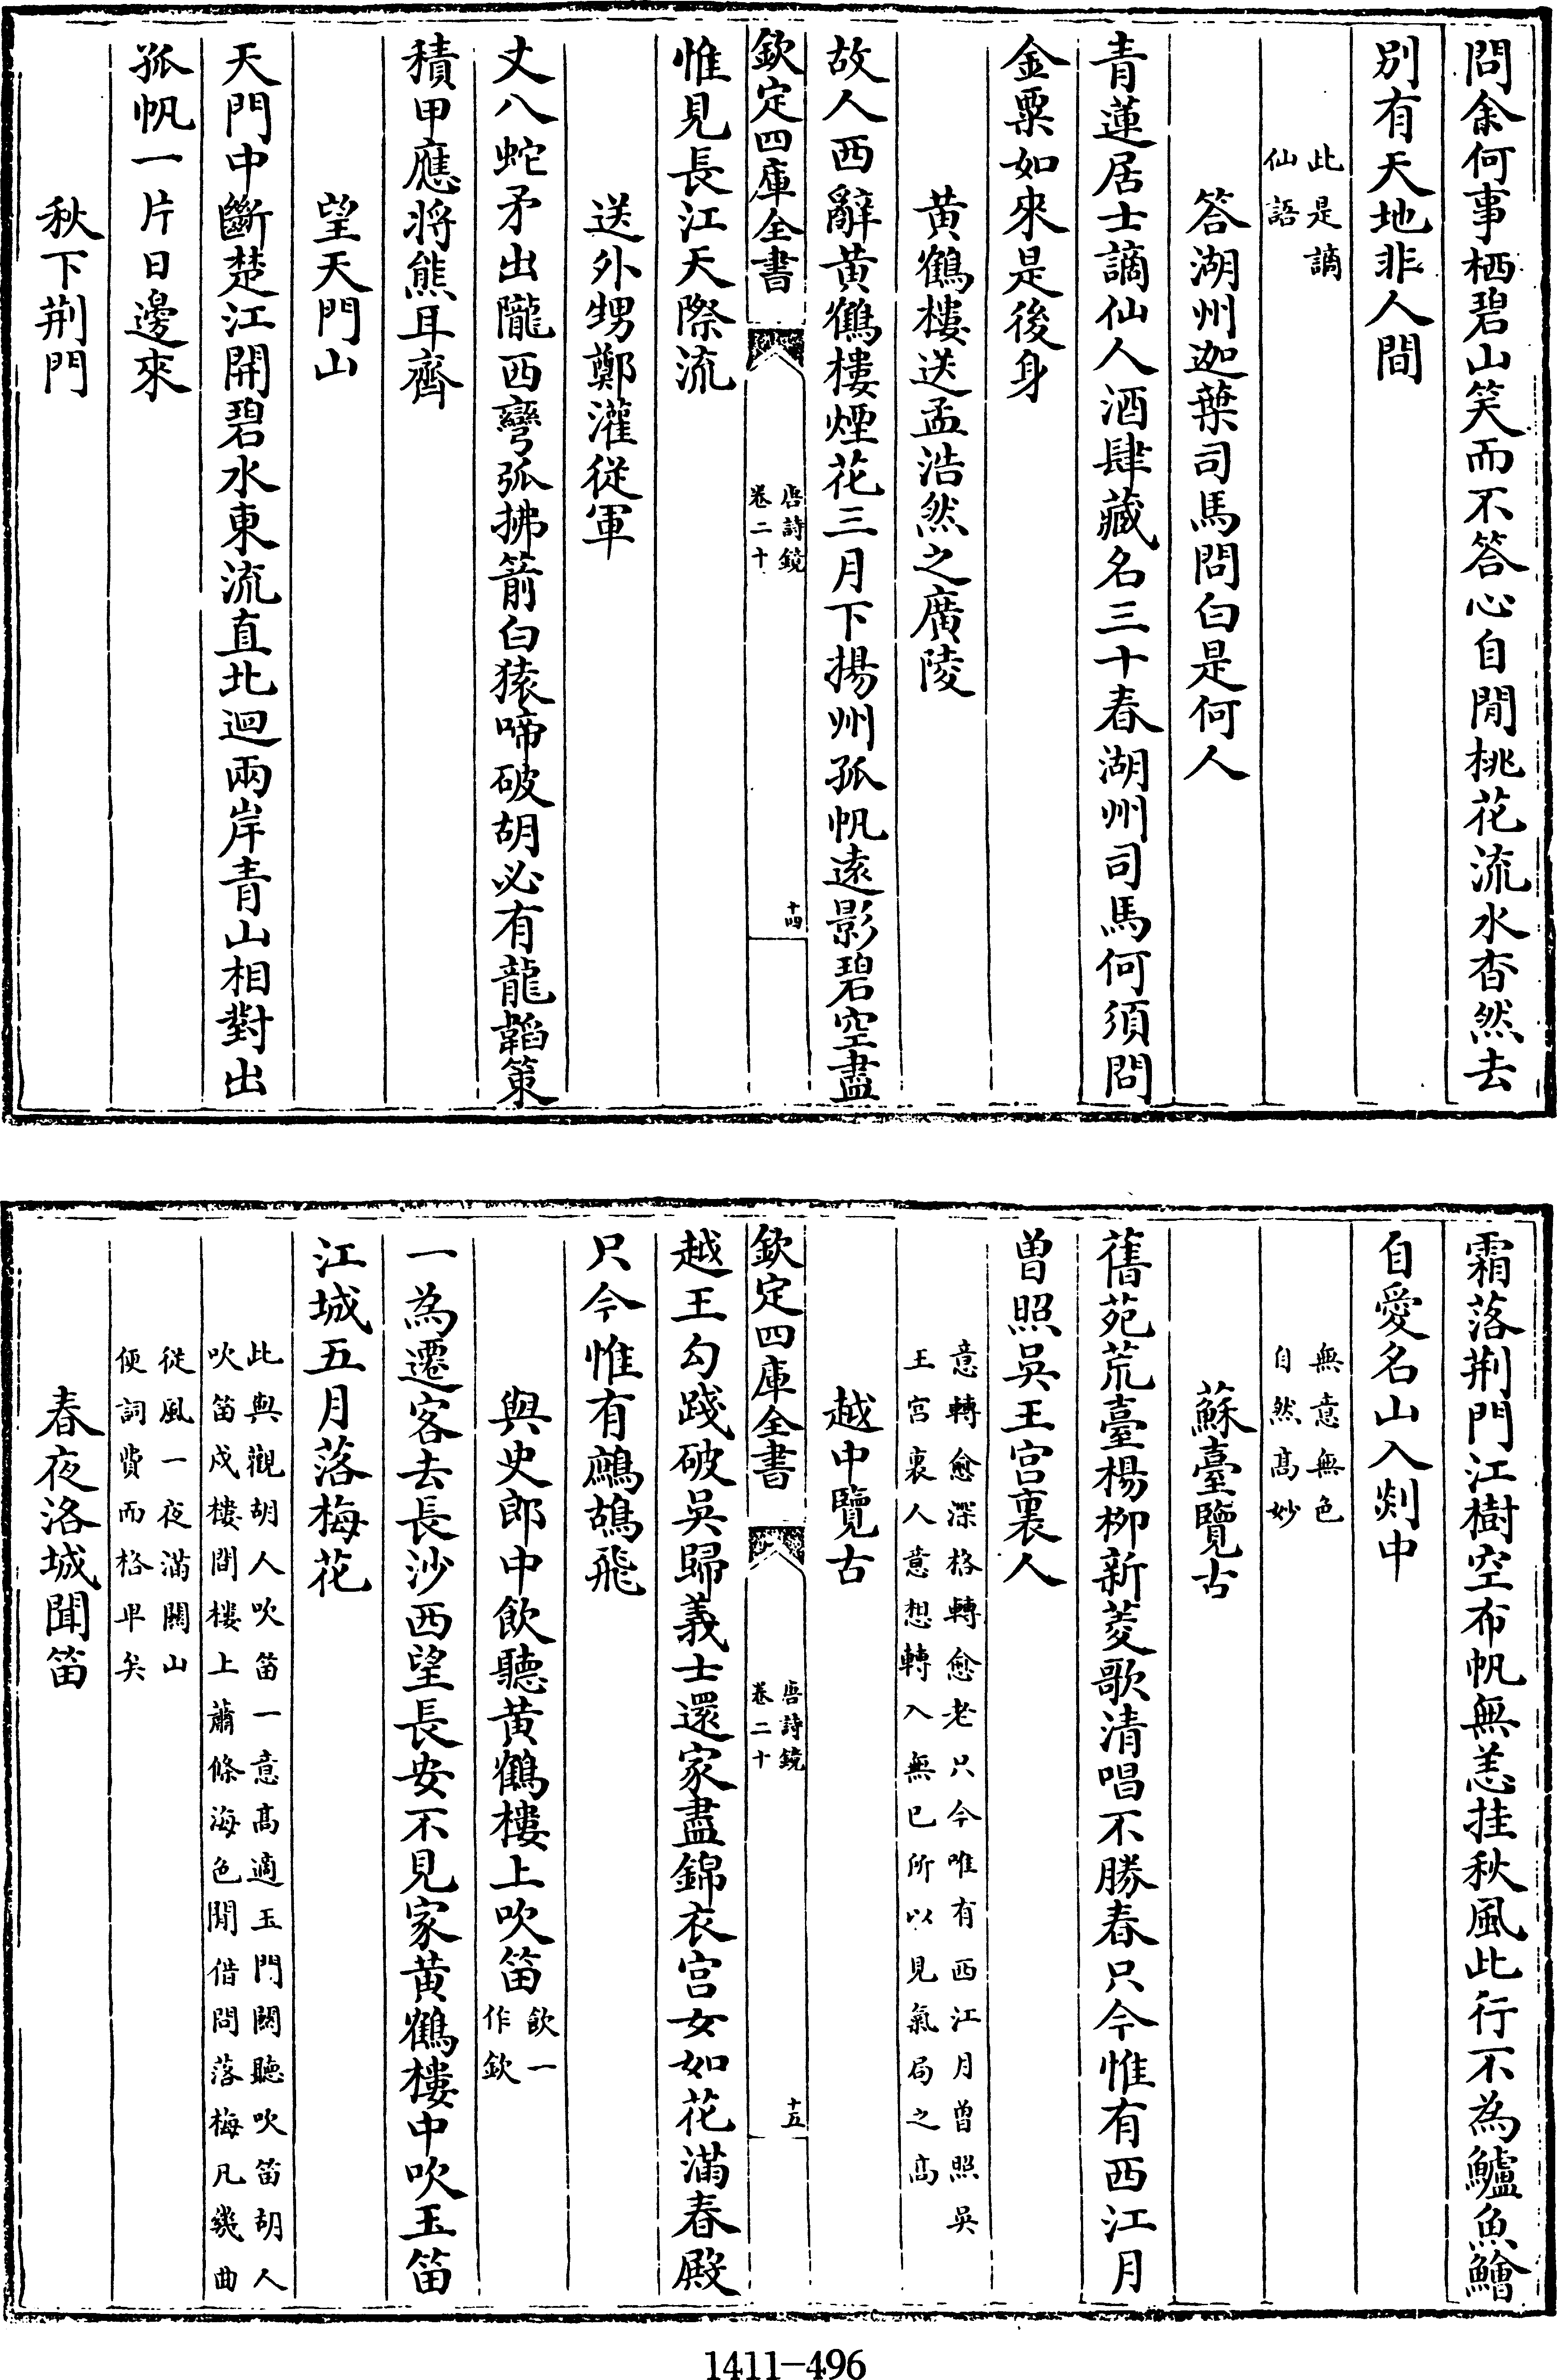 問余何事栖碧山笑而不答心自閒桃花流水杳然去
別有天地非人間
此是謫
仙語
答湖州迦葉司馬問白是何人
青蓮居士謫仙人酒肆藏名三十春湖州司馬何須問
金粟如來是後身
黄鶴樓送孟浩然之廣陵
故人西辭黄鶴樓煙花三月下揚州孤帆遠影碧空盡
欽定四庫全書
唐詩鏡
卷二十
十四
惟見長江天際流
送外甥鄭灌從軍
丈八蛇矛出隴西彎弧拂箭白猿啼破胡必有龍韜策
積甲應將熊耳齊
望天門山
天門中斷楚江開碧水東流直北迴兩岸青山相對出
孤帆一片日邊來
秋下荆門
霜落荆門江樹空布帆無恙挂秋風此行不為鱸魚鱠
自愛名山入剡中
無意無色
自然髙妙
蘇臺覽古
舊苑荒臺楊柳新菱歌清唱不勝春只今惟有西江月
曽照吳王宫裏人
意轉愈深格轉愈老只今唯有西江月曽照吳
王宫裏人意想轉入無已所以見氣局之髙
越中覽古
欽定四庫全書
唐詩鏡
卷二十
十五
越王勾踐破吳歸義士還家盡錦衣宫女如花滿春殿
只今惟有鷓鴣飛
與史郎中飲聽黄鶴樓上吹笛
飲一
作欽
一為遷客去長沙西望長安不見家黄鶴樓中吹玉笛
江城五月落梅花
此與觀胡人吹笛一意髙適玉門關聽吹笛胡人
吹笛戍樓間樓上蕭條海色閒借問落梅凡幾曲
從風一夜滿關山
便詞費而格卑矣
春夜洛城聞笛
1411-496